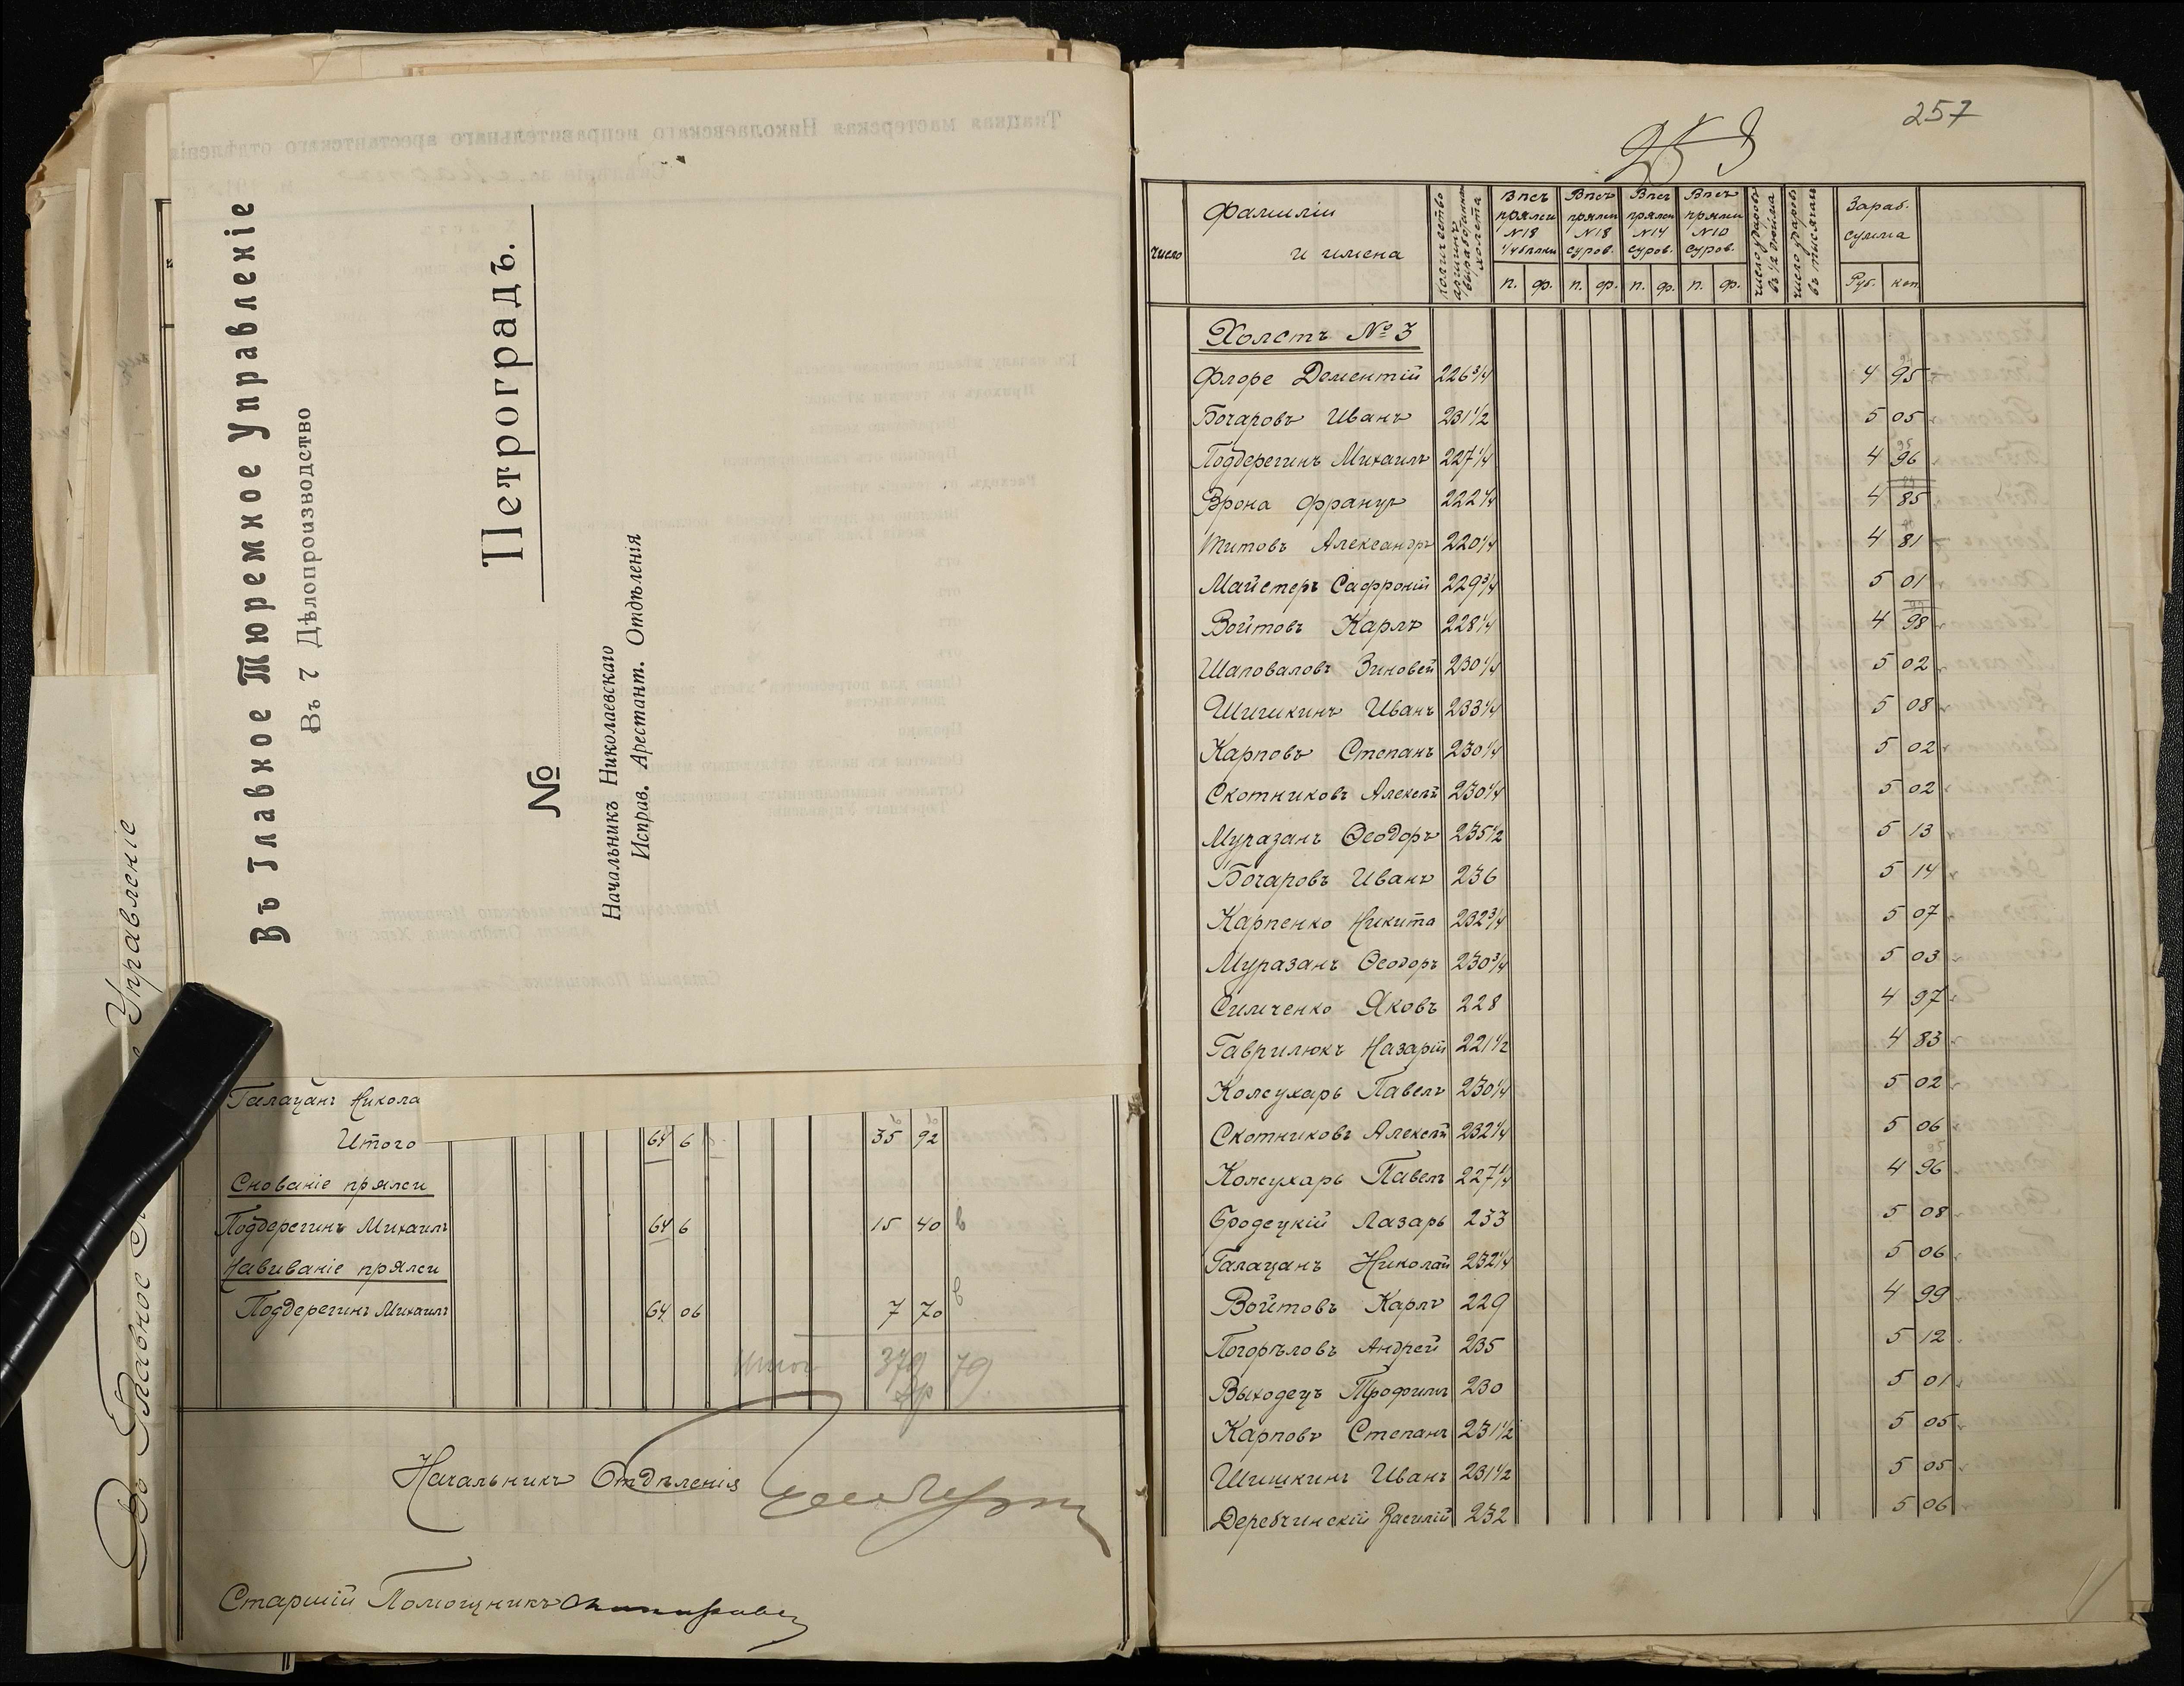 Въ Главное Тюремное Управленіе
Въ 7 Дѣлопроизводство
Петроградъ.
№
Начальникъ Николаевскаго
Исправ. Арестант. Отдѣленія
Ткацкая мастерская Николаевскаго исправительнаго арестантскаго отдѣленія
Управленіе
Главное
Галацанъ Никола
Итого 64 6 35 92
Снованіе пряжи
Поддерегинъ Михаилъ 64 6 15 40 в
Навиваніе пряжи
Поддерегинъ Михаилъ 64 06 7 70 в
Итог 379 79
Начальникъ Отдѣленія
Старшій Помощникъ
257
253
число
Фамиліи и имена
количество аршинъ выработанна холста
Вѣсъ пряжи №18 1/4 бѣлки
Вѣсъ пряжи №18 суров.
Вѣсъ пряжи №14 суров.
Вѣсъ пряжи №10 суров.
число ударовъ въ 1/2 дюйма
число ударовъ въ тысячахъ
Зараб. сумма
п. ф. п. ф. п. ф. п. ф. Руб. коп.
Холстъ № 3
Флоре Дементій 226 3/4 4 95
Бочаровъ Иванъ 231 1/2 5 05
Поддерегинъ Михаилъ 227 1/4 4 96
Врона Францъ 222 1/4 4 85
Титовъ Александръ 220 1/4 4 81
Майстеръ Сафроній 229 3/4 5 01
Войтовъ Карлъ 228 1/4 4 98
Шаповаловъ Зиновей 230 1/4 5 02
Шишкинъ Иванъ 233 1/4 5 08
Карповъ Степанъ 230 1/4 5 02
Скотниковъ Алексѣй 230 1/4 5 02
Муразанъ Ѳеодоръ 235 1/2 5 13
Бочаровъ Иванъ 236 5 14
Карпенко Никита 232 3/4 5 07
Муразанъ Ѳеодоръ 230 3/4 5 03
Симченко Яковъ 228 4 97
Гаврилюкъ Назарій 221 1/2 4 83
Кожухарь Павелъ 230 1/4 5 02
Скотниковъ Алексѣй 232 1/4 5 06
Кожухарь Павелъ 227 1/4 4 96
Бродецкій Лазарь 233 5 08
Галацанъ Николай 232 1/4 5 06
Войтовъ Карлъ 229 4 99
Погорѣловъ Андрей 235 5 12
Выходецъ Трофимъ 230 5 01
Карповъ Степанъ 231 1/2 5 05
Шишкинъ Иванъ 231 1/2 5 05
Деребчинскій Василій 232 5 06